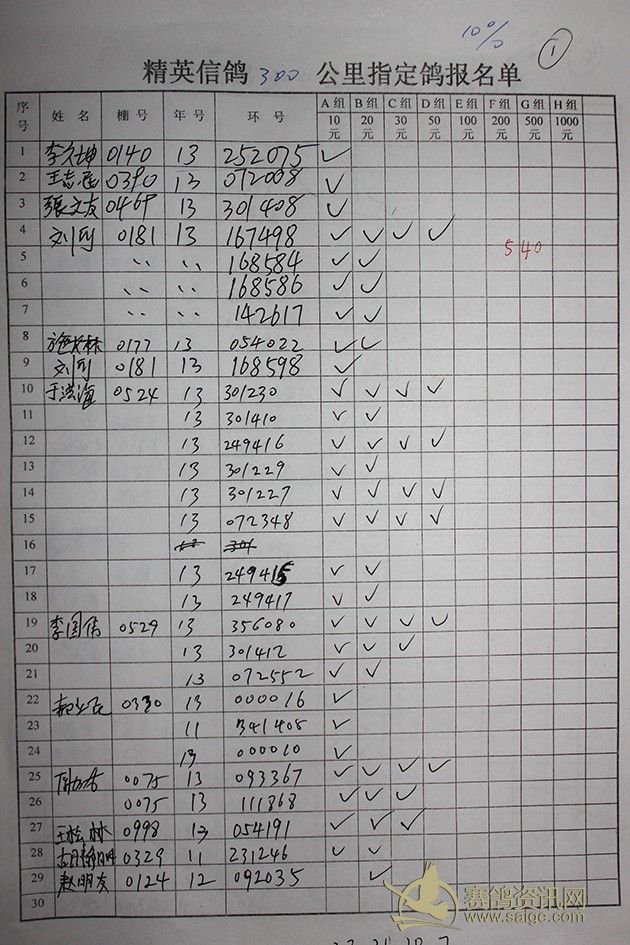 10%
1
精英信鸽 300 公里指定鸽报名单
序号 姓名 棚号 年号 环号 A组 10元 B组 20元 C组 30元 D组 50元 E组 100元 F组 200元 G组 500元 H组 1000元
1 李久坤 0140 13 252075 ✓
2 王志 0390 13 072008 ✓
3 張文友 0469 13 301408 ✓
4 刘 0181 13 167498 ✓ ✓ ✓ ✓
540
5 〃 〃 168584 ✓ ✓
6 〃 〃 168586 ✓ ✓
7 〃 〃 142617 ✓ ✓
8 林 0177 13 054022 ✓ ✓
9 刘 0181 13 168598 ✓
10 于洪海 0524 13 301230 ✓ ✓ ✓ ✓
11 13 301410 ✓ ✓
12 13 249416 ✓ ✓ ✓ ✓
13 13 301229 ✓ ✓
14 13 301227 ✓ ✓ ✓ ✓
15 13 072348 ✓ ✓ ✓ ✓
16
17 13 249415 ✓ ✓
18 13 249417 ✓ ✓
19 李国伟 0529 13 356080 ✓ ✓ ✓ ✓
20 13 301412 ✓ ✓ ✓
21 13 072552 ✓ ✓
22 0330 13 000016 ✓
23 11 341408 ✓
24 13 000010 ✓
25 0075 13 093367 ✓ ✓ ✓ ✓
26 0075 13 111868 ✓ ✓ ✓
27 王松林 0998 13 054191 ✓ ✓ ✓
28 胡静明 0329 11 231246 ✓ ✓
29 赵明友 0124 12 092035 ✓
30
赛鸽资讯网
www.saige.com